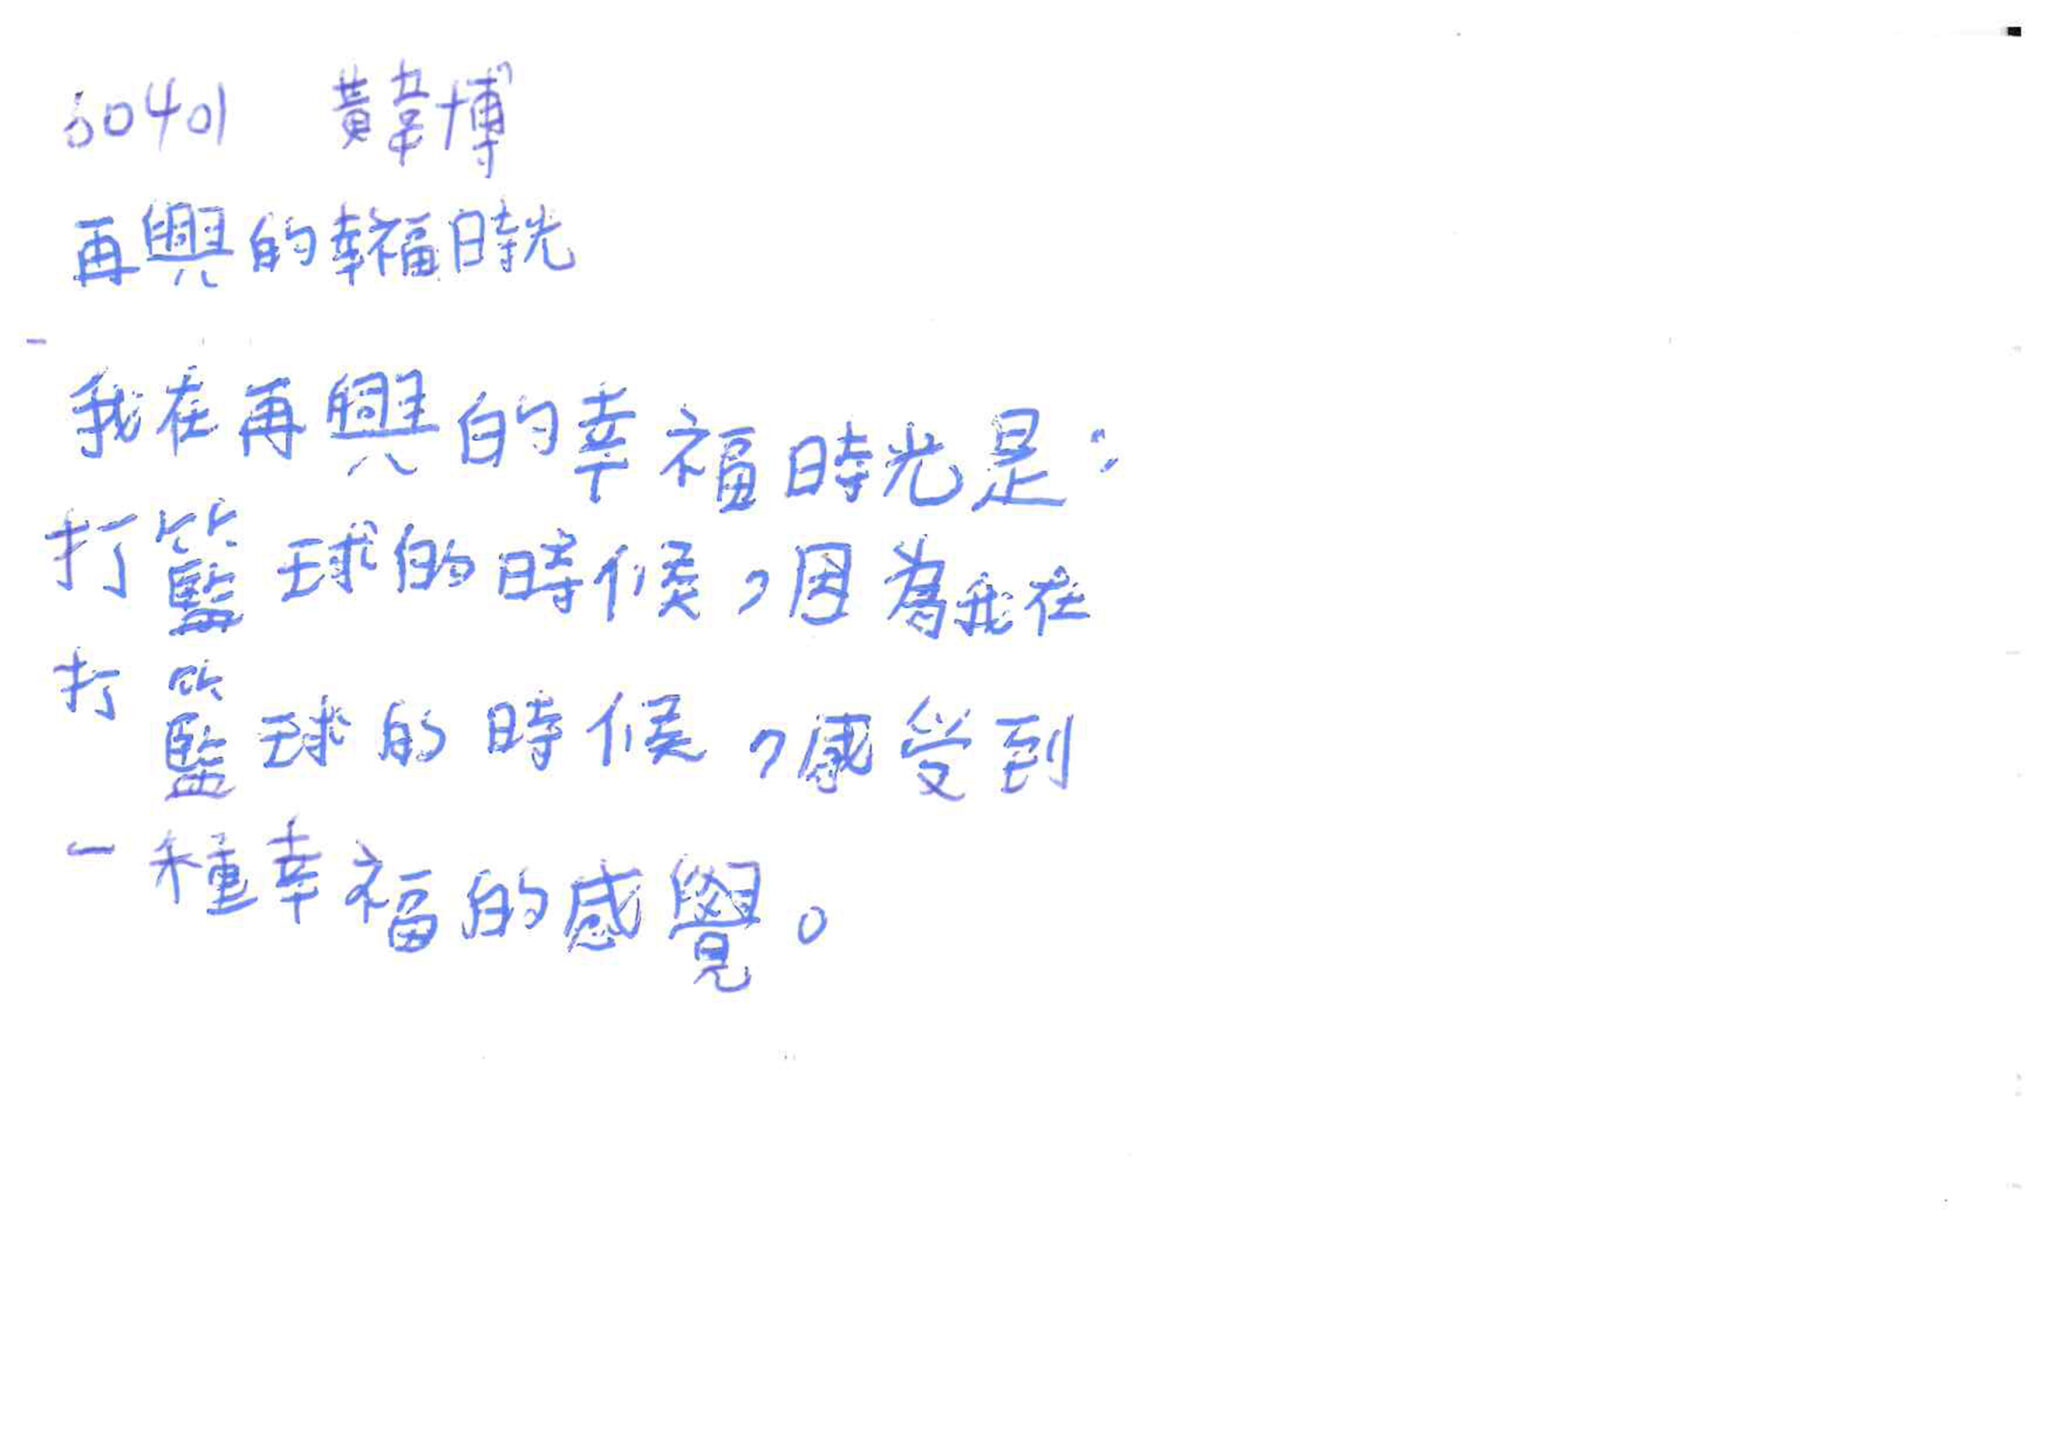 60401 黃韋博
再興的幸福時光
我在再興的幸福時光是：
打籃球的時候，因為我在
打籃球的時候，感受到
一種幸福的感覺。